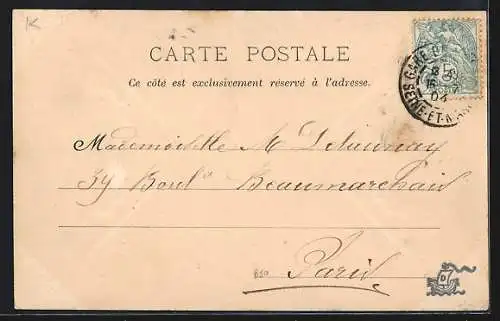 K
CARTE POSTALE
Ce côté est exclusivement réservé à l'adresse.
Mademoiselle M Delaunay
39 Boul^d Beaumarchais
Paris
SEINE-ET-
04